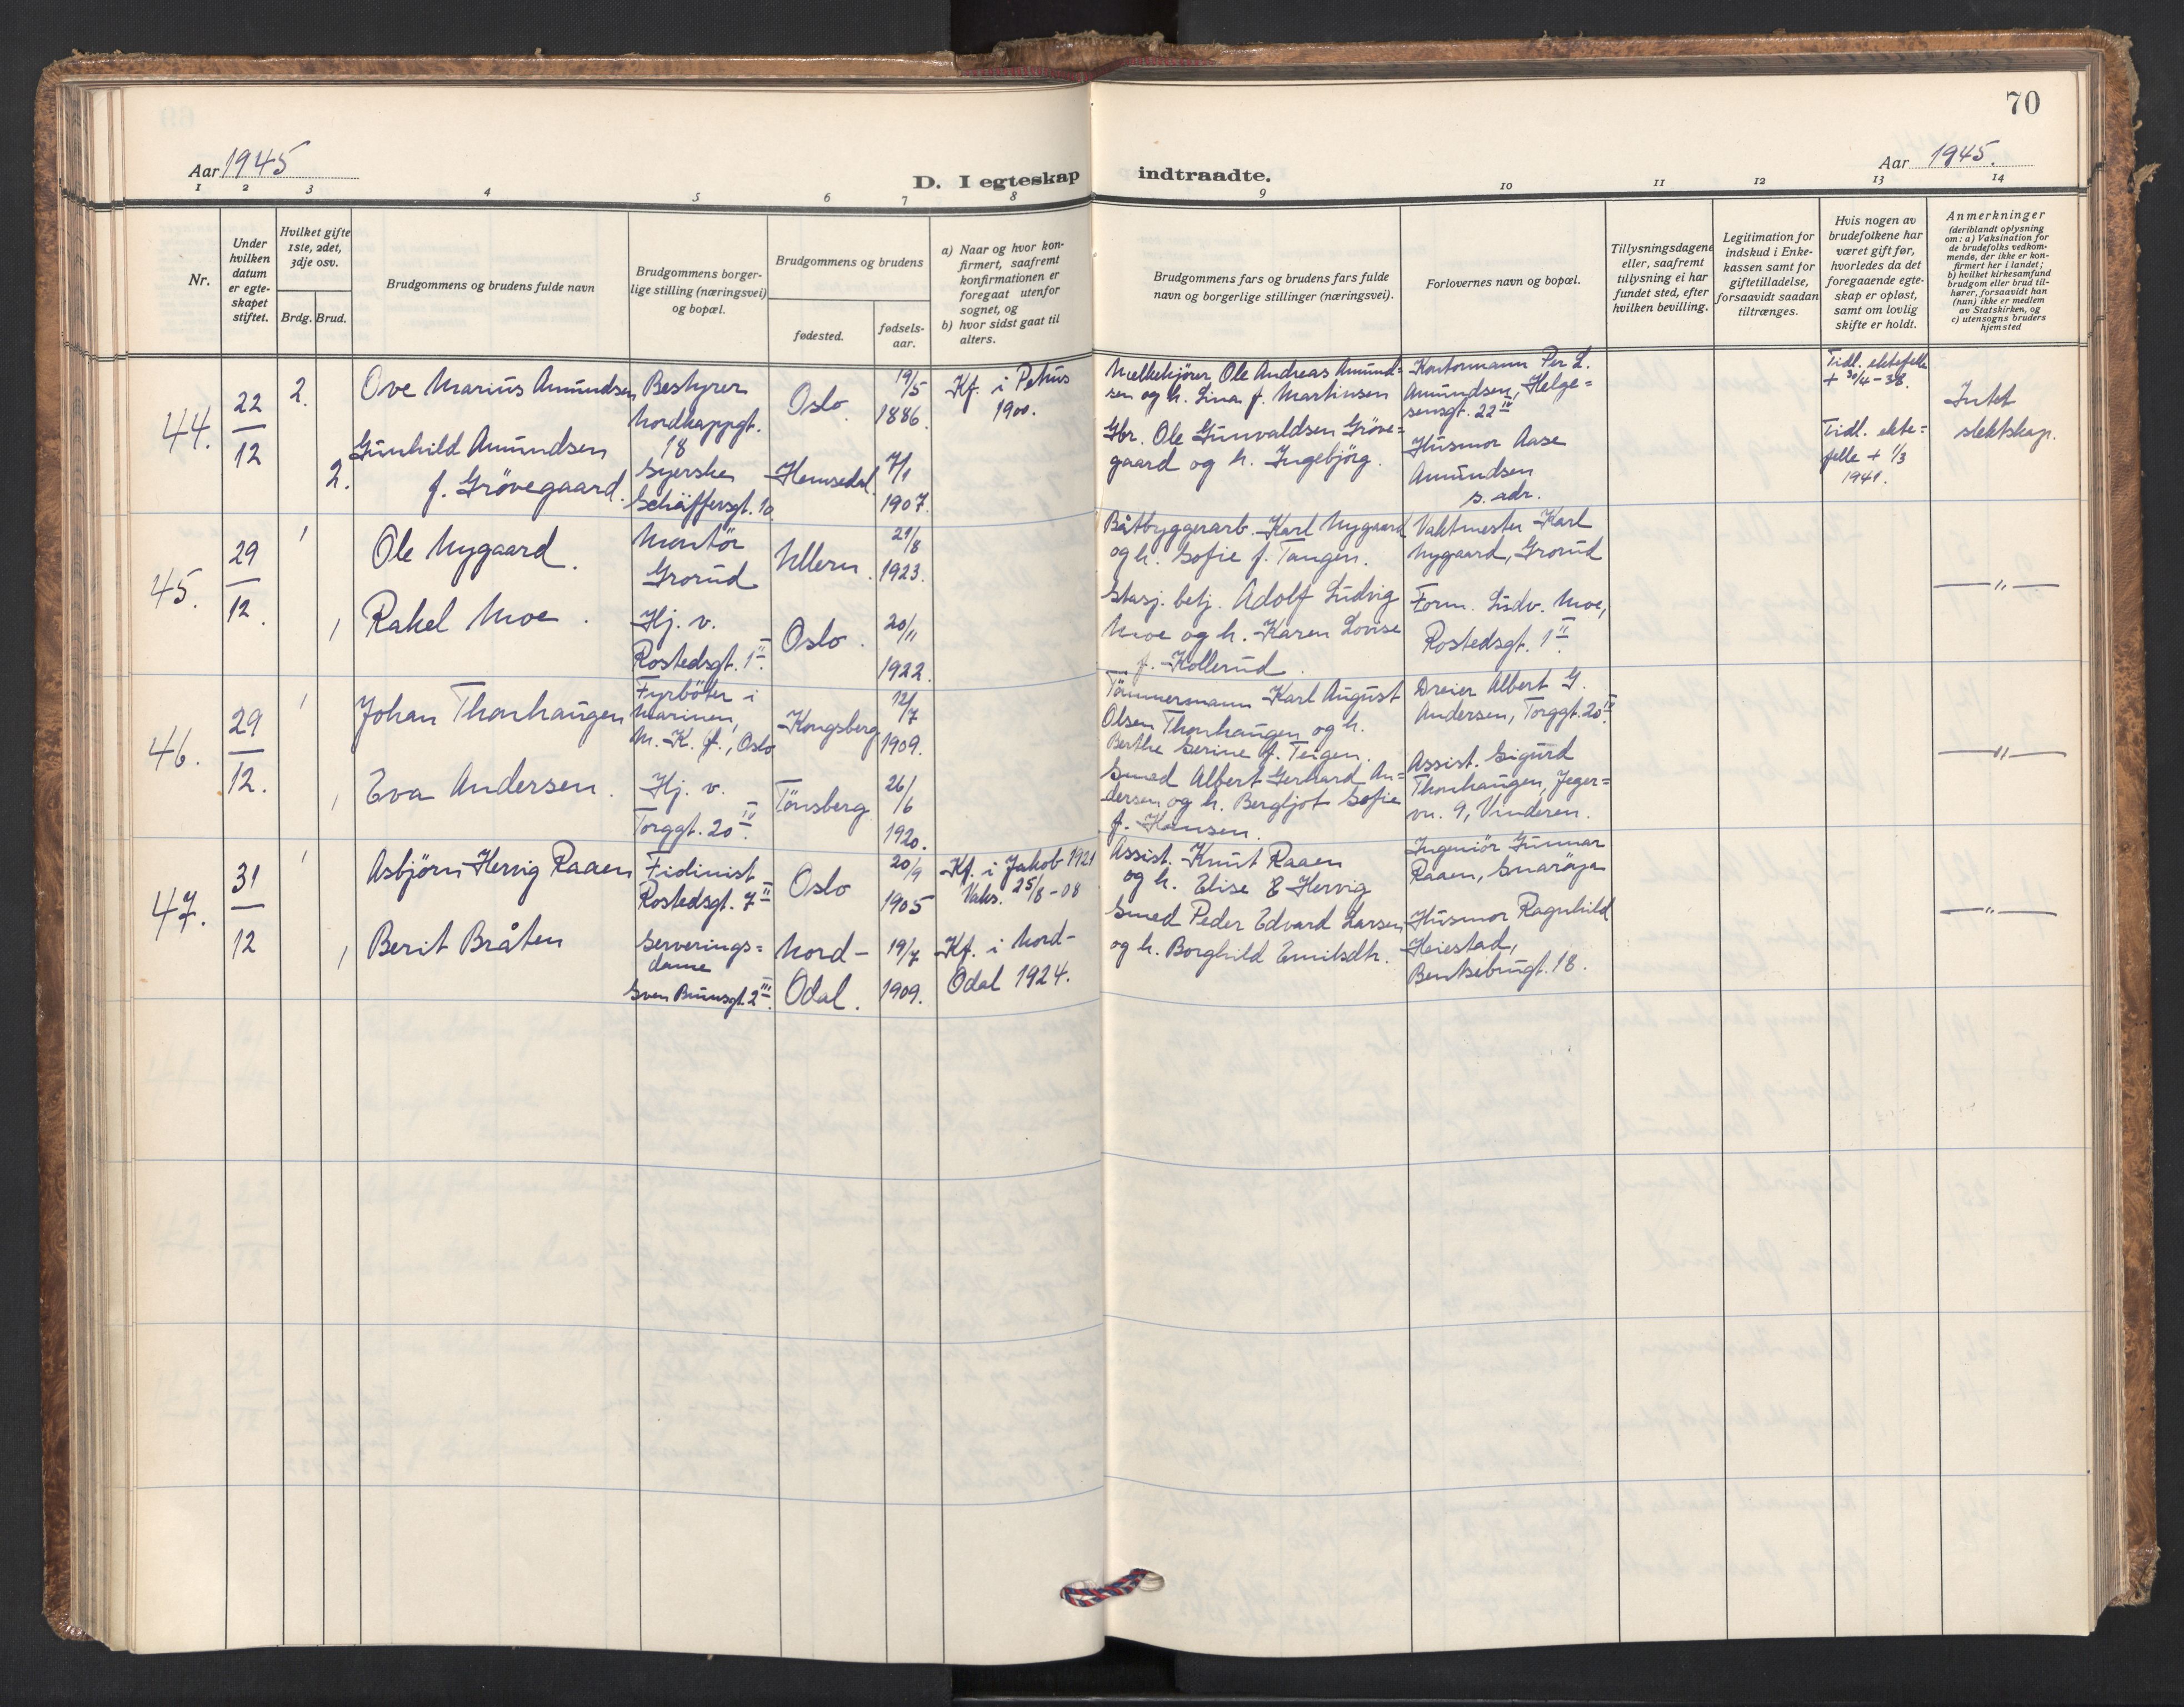 70
Aar 1945
Aar 1945.
D. I egteskap indtraadte.
1 2 3 4 5 6 7 8 9 10 11 12 13 14
Nr.
Under hvilken datum er egte-skapet stiftet.
Hvilket gifte 1ste, 2det, 3dje osv.
Brdg. Brud.
Brudgommens og brudens fulde navn
Brudgommens borger-
lige stilling (næringsvei)
og bopæl.
Brudgommens og brudens
fødested.
fødsels-
aar.
a) Naar og hvor kon-
firmert, saafremt
konfirmationen er
foregaat utenfor
sognet, og
b) hvor sidst gaat til
alters.
Brudgommens fars og brudens fars fulde
navn og borgerlige stillinger (næringsvei).
Forlovernes navn og bopæl.
Tillysningsdagene
eller, saafremt
tillysning ei har
fundet sted, efter
hvilken bevilling.
Legitimation for
indskud i Enke-
kassen samt for
giftetilladelse,
forsaavidt saadan
tiltrænges.
Hvis nogen av
brudefolkene har
været gift før,
hvorledes da det
foregaaende egte-
skap er opløst,
samt om lovlig
skifte er holdt.
Anmerkninger
(deriblandt oplysning
om: a) Vaksination for
de brudefolks vedkom-
mende, der ikke er kon-
firmert her i landet;
b) hvilket kirkesamfund
brudgom eller brud til-
hører, forsaavidt han
(hun) ikke er medlem
av Statskirken, og
c) utensogns bruders
hjemsted
44.
22
12
2.
Ove Marius Amundsen
Bestyrer
Nordkappgt.
18
Oslo
19/5
1886.
Kf. i Petrus
1900.
Melkekjører Ole Andreas Amund=
sen og h. Lina f. Martinsen
Kontormann Per L.
Amundsen, Helge=
sensgt. 22 IV
Tidl. ektefelle
+ 30/4-38.
Intet
slektskap.
2.
Gunhild Amundsen
f. Grövegaard.
Syerske
Schäffersgt. 10
Hemsedal
7/1
1907.
Gbr. Ole Gunvaldsen Gröve=
gaard og h. Ingebjörg.
Husmor Aase
Amundsen
s. adr.
Tidl. ekte=
felle + 1/3
1941.
45.
29
12.
1
Ole Nygaard.
Montör
Grorud
Ullern.
21/8
1923.
Båtbyggerarb. Karl Nygaard
og h. Sofie f. Tangen.
Vaktmester Karl
Nygaard, Grorud
— " —
1
Rakel Moe.
Hj. v.
Rostedsgt. 1 II.
Oslo.
20/11
1922.
Stasj. betj. Adolf Ludvig
Moe og h. Karen Lovise
f. Kollerud.
Form. Ludv. Moe,
Rostedsgt. 1 II.
46.
29
12.
1
Johan Thorhaugen
Fyrböter i
Marinen,
M. K. f., Oslo
Kongsberg
12/7
1909.
Tömmermann Karl August
Olsen Thorhaugen og h.
Berthe Serine f. Teigen.
Dreier Albert G.
Andersen, Torggt. 20 IV.
— " —
1
Eva Andersen.
Hj. v.
Torggt. 20 IV.
Tönsberg
26/6
1920.
Smed Albert Gerhard An=
dersen og h. Bergljot Sofie
f. Hansen.
Assist. Sigurd
Thorhaugen, Jeger=
vn. 9, Vinderen.
47.
31
12
1
Asbjörn Hervig Raaen
Fiolinist
Rostedsgt. 7 II
Oslo
20/9
1905
Kf. i Jakob 1921
Vaks. 25/8-08
Assist. Knut Raaen
og h. Elise E Hervig
Ingeniör Gunnar
Raaen, Snaröya
— " —
1
Berit Bråten
Serverings=
dame
Sven Bruunsgt. 2 III.
Nord-
Odal.
19/7
1909.
Kf. i Nord-
Odal 1924.
Smed Peder Edvard Larsen
og h. Borghild Emilsdtr.
Husmor Ragnhild
Heiestad,
Bentsebrugt. 18.